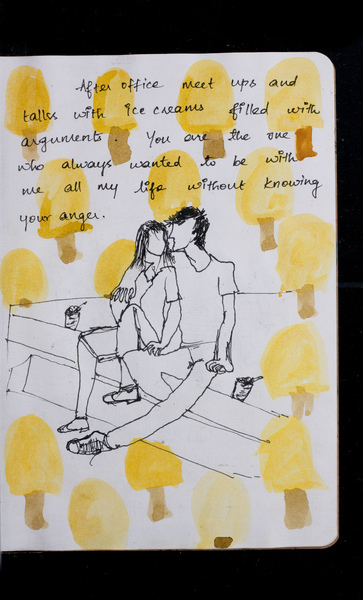 After office meet ups and
talks with ice creams filled with
arguments. You are the one
who always wanted to be with
me all my life without knowing
your anger.